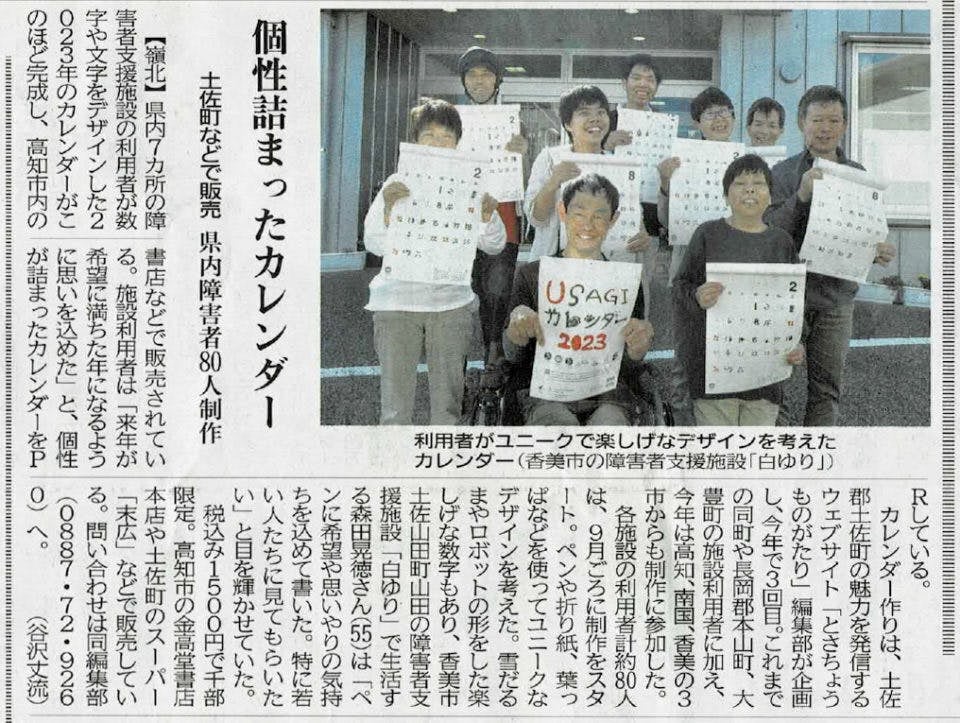 個性詰まったカレンダー
土佐町などで販売 県内障害者80人制作
USAGI
カレンダー
2023
2
2
8
8
2
利用者がユニークで楽しげなデザインを考えた
カレンダー（香美市の障害者支援施設「白ゆり」）
【嶺北】県内７カ所の障
害者支援施設の利用者が数
字や文字をデザインした２
０２３年のカレンダーがこ
のほど完成し、高知市内の
書店などで販売されてい
る。施設利用者は「来年が
希望に満ちた年になるよう
に思いを込めた」と、個性
が詰まったカレンダーをＰ
Ｒしている。
カレンダー作りは、土佐
郡土佐町の魅力を発信する
ウェブサイト「とさちょう
ものがたり」編集部が企画
し、今年で３回目。これまで
の同町や長岡郡本山町、大
豊町の施設利用者に加え、
今年は高知、南国、香美の３
市からも制作に参加した。
各施設の利用者計約80人
は、９月ごろに制作をスタ
ート。ペンや折り紙、葉っ
ぱなどを使ってユニークな
デザインを考えた。雪だる
まやロボットの形をした楽
しげな数字もあり、香美市
土佐山田町山田の障害者支
援施設「白ゆり」で生活す
る森田晃徳さん(55)は「ペ
ンに希望や思いやりの気持
ちを込めて書いた。特に若
い人たちに見てもらいた
い」と目を輝かせていた。
税込み１５００円で千部
限定。高知市の金高堂書店
本店や土佐町のスーパー
「末広」などで販売してい
る。問い合わせは同編集部
（０８８７・７２・９２６
０）へ。　（谷沢丈流）